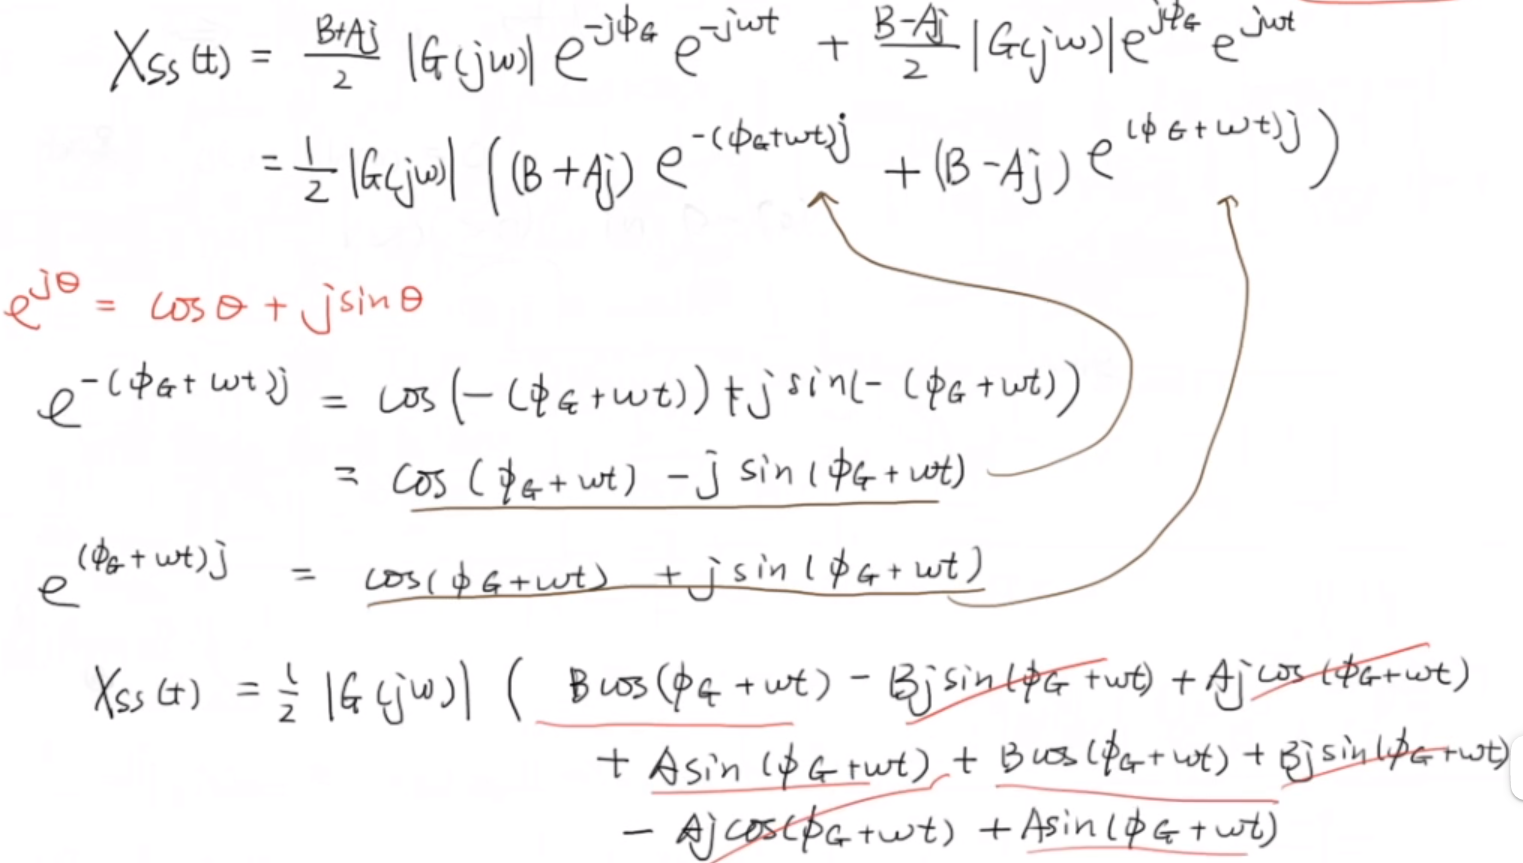 Xss(t) = B+Aj/2 |G(jω)| e^-jϕG e^-jωt + B-Aj/2 |G(jω)| e^jϕG e^jωt
= 1/2 |G(jω)| ((B+Aj) e^-(ϕG+ωt)j + (B-Aj) e^(ϕG+ωt)j)
e^jθ = cosθ + jsinθ
e^-(ϕG+ωt)j = cos(-(ϕG+ωt)) + j sin(-(ϕG+ωt))
= cos(ϕG+ωt) - j sin(ϕG+ωt)
e^(ϕG+ωt)j = cos(ϕG+ωt) + j sin(ϕG+ωt)
Xss(t) = 1/2 |G(jω)| ( B cos(ϕG+ωt) - Bj sin(ϕG+ωt) + Aj cos(ϕG+ωt)
+ A sin(ϕG+ωt) + B cos(ϕG+ωt) + Bj sin(ϕG+ωt)
- Aj cos(ϕG+ωt) + A sin(ϕG+ωt)